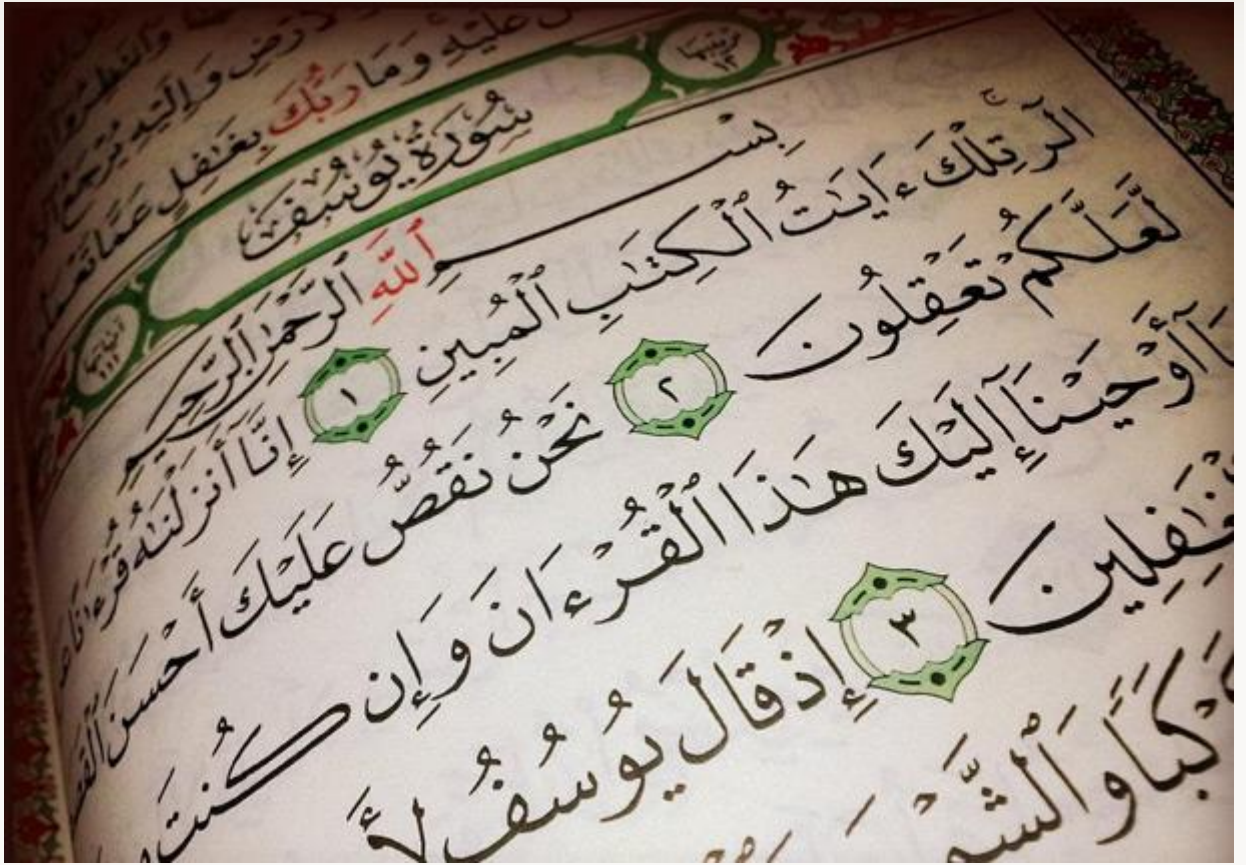 وَإِلَيْهِ يُرْجَعُ
عَلَيْهِ وَمَا رَبُّكَ بِغَٰفِلٍ عَمَّا
ترتيبها ١٢ سُورَةُ يُوسُفَ آياتها ١١١
بِسْمِ ٱللَّهِ ٱلرَّحْمَٰنِ ٱلرَّحِيمِ
الٓر تِلْكَ ءَايَٰتُ ٱلْكِتَٰبِ ٱلْمُبِينِ ١ إِنَّآ أَنزَلْنَٰهُ قُرْءَٰنًا
لَّعَلَّكُمْ تَعْقِلُونَ ٢ نَحْنُ نَقُصُّ عَلَيْكَ أَحْسَنَ
أَوْحَيْنَآ إِلَيْكَ هَٰذَا ٱلْقُرْءَانَ وَإِن كُنتَ
غَٰفِلِينَ ٣ إِذْ قَالَ يُوسُفُ
كَبًا وَٱلشَّمْ